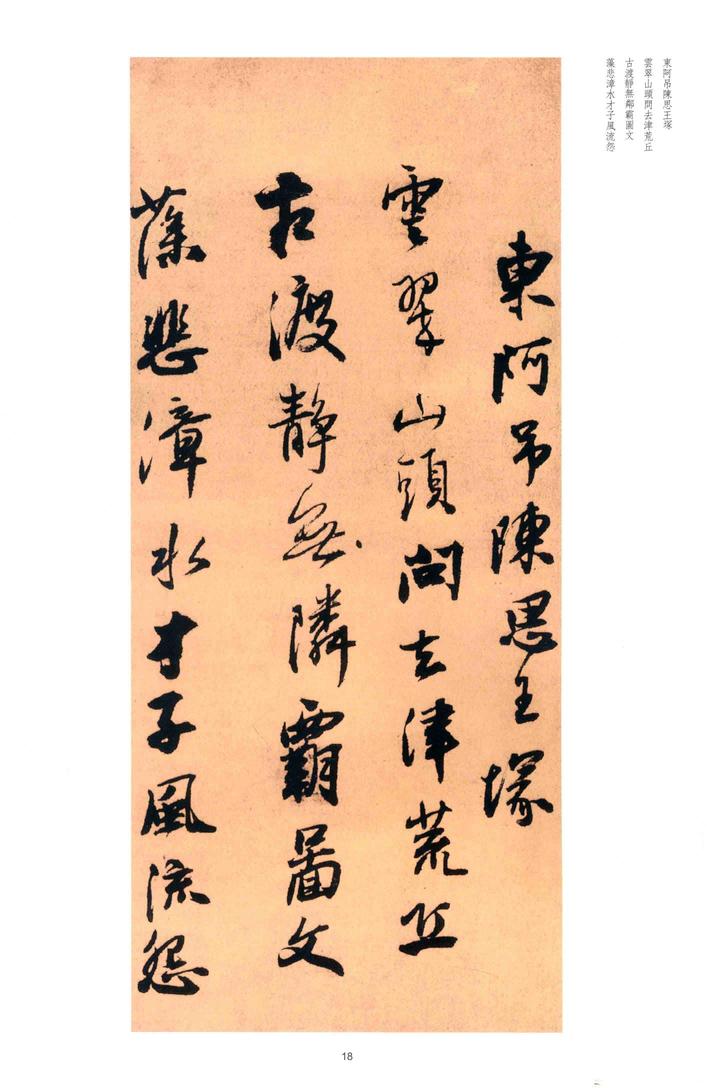 東阿吊陳思王塚
雲翠山頭問去津荒丘
古渡靜無鄰霸圖文
藻悲漳水才子風流怨
東阿吊陳思王塚
雲翠山頭問去津荒丘
古渡静無隣霸圖文
藻悲漳水才子風流怨
18